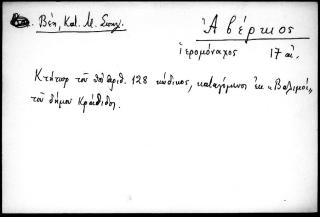 Βέη, Κατ. Μ. Σπηλ.
Ἀβέρκιος
ἱερομόναχος 17 αἰ.
Κτήτωρ τοῦ ὑπ' ἀριθ. 128 κώδικος, καταγόμενος ἐκ «Βαλιμοί»
τοῦ δήμου Κράθιδος.